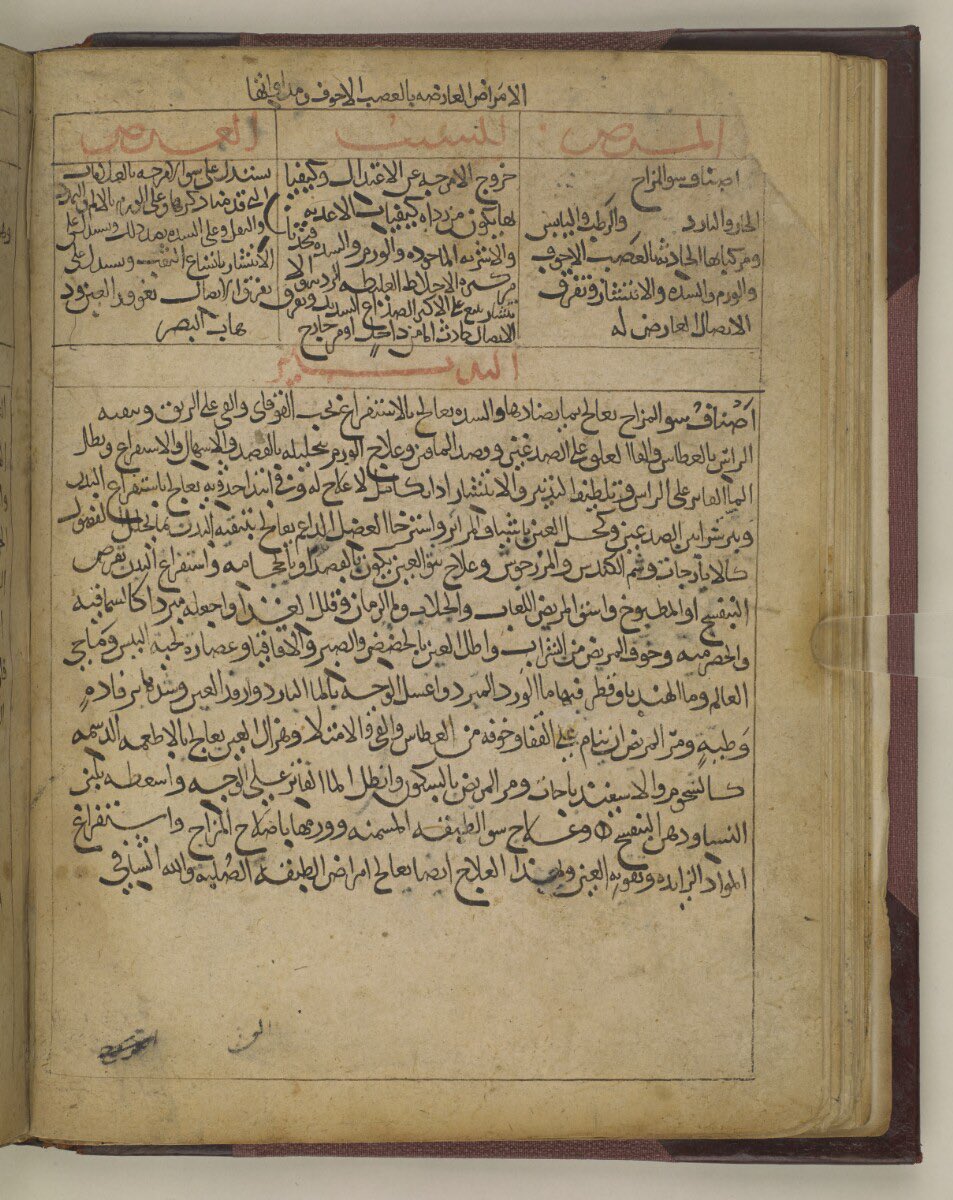 الامراض العارضه بالعصب الاجوف ومداواتها
المرض
السبب
العرض
اصناف سو المزاج
الحار والبارد والرطب واليابس
ومركباتها الحادثه بالعصب الاجوف
والورم والسده والانتشار وتفرق
الاتصال العارض له
خروج الامزجه عن الاعتدال وكيفيا
تها يكون من رداة كيفيات الاغديه
والاشربه الماخوده والورم والسده
كثره الاخلاط الغليظه
الصداع الشديد وتفرق
الاتصال حادث اما من داخل او من خارج
يستدل على سو المزاجه بالعلامات
التى قد منا ذكرها وعلى الورم بالالم
والثقل وعلى السده بضد ذلك ويستدل على
الانتشار باتساع الثقب ويستدل على
تفرق الاتصال بغوور العين ود
هاب البصر
التدبير
اصناف سو المزاج يعالج بما يضادها والسده يعالج بالاستفراغ بحب القوقاى والقى على الريق وتنقيه
الراس بالعطاس والقا العلق على الصدغين وفصد الماقين وعلاج الورم بتحليله بالفصد والاسهال والاستفراغ وبطل
الما الفاتر على الراس وتلطيف التدبير والانتشار ادا كامل لا علاج له وفى ابتدا حدوثه يعالج باستفراغ البدن
وبتر شراين الصدغين وكحل العين باشياف المراير واسترخا العضل الداعم يعالج بتنقيه البدن بما يحلل الفضول
كالايارجات وشم الكندس والمرزجوش وعلاج نتو العين يكون بالفصد او بالحجامه واستفراغ البدن بقرص
البنفسج او المطبوخ واسق المريض اللعاب والجلاب وما الرمان وقلل الغدا واجعله مبردا كالسماقيه
والحصرميه وخوف المريض من الشراب واطل العين بالحضض والصبر والاقاقيا وعصاره لحيه التيس ومكاحى
العالم وما الهندبا وقطر فيها ما الورد المبرد واغسل الوجه بالما البارد وارفد العين وشده برفاده
وطبه ومر المريض ان ينام على القفا وخوفه من العطاس والقى والامتلا وهزال العين يعالج بالاطعمه الدسمه
كالشحوم والاسفيدباجات ومر المريض بالسكون وانطل الما الفاتر على الوجه واسعطه بلبن
النسا ودهن البنفسج وعلاج سو الطبقه المشيميه وورمها باصلاح المزاج واستفراغ
المواد الزايده وتقويه العين وبهدا العلاج ايضا يعالج امراض الطبقه الصلبه والله الشافى